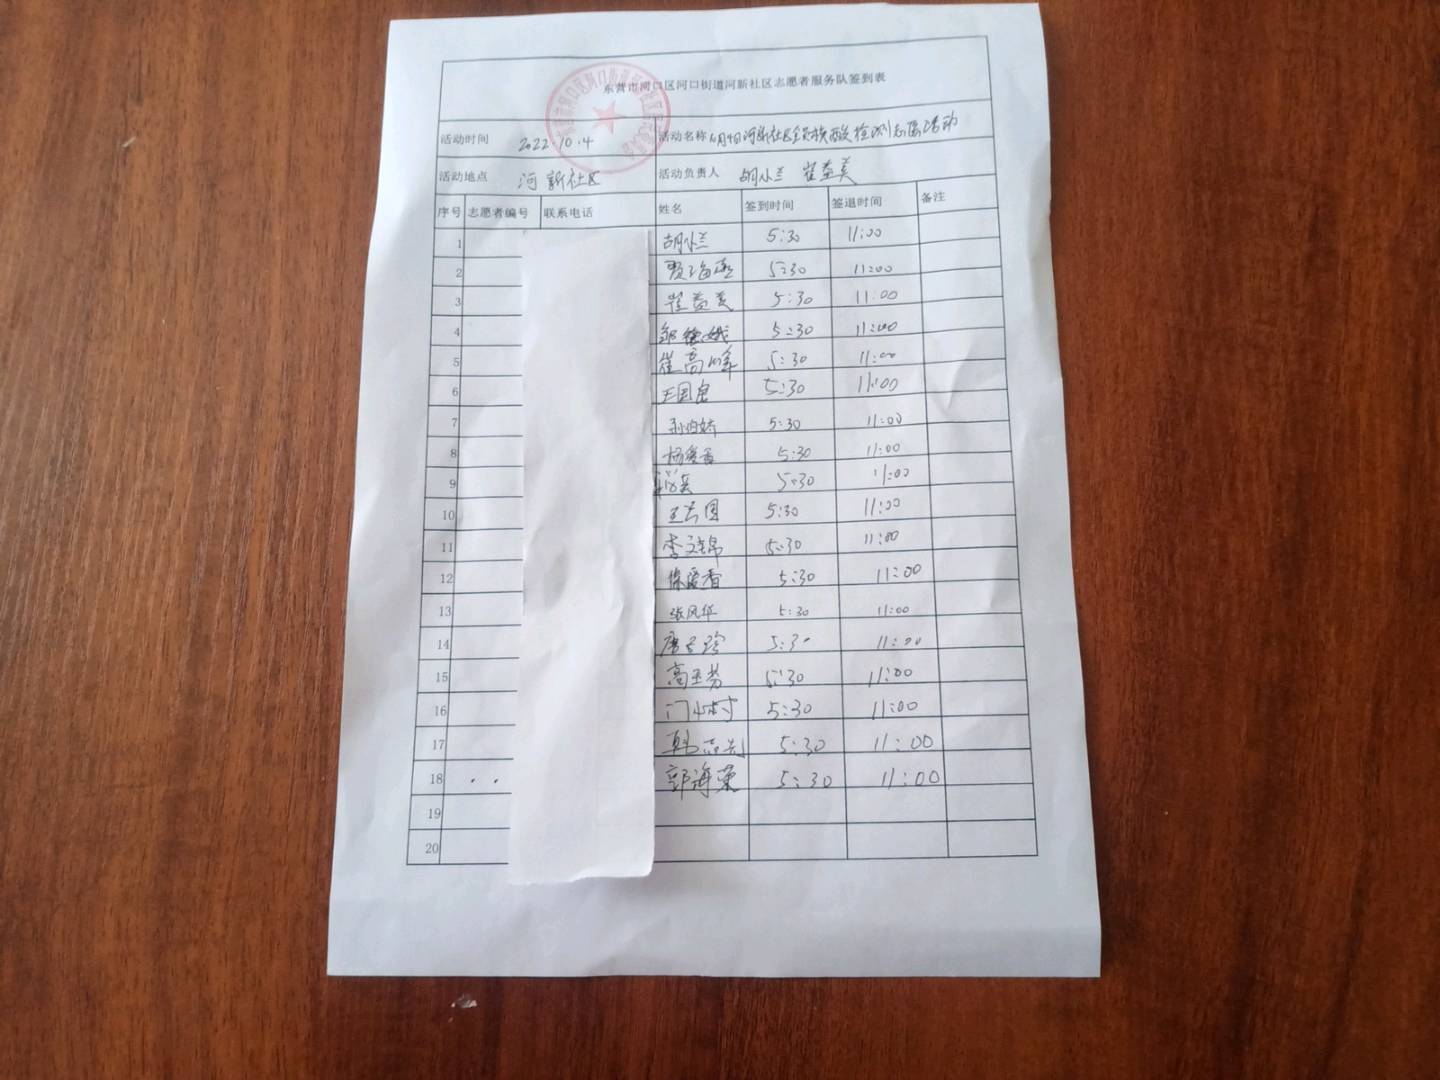 东营市河口区河口街道河新社区志愿者服务队签到表
活动时间 2022.10.4 活动名称 10月4日河新社区全员核酸检测志愿活动
活动地点 河新社区 活动负责人 胡小兰 崔益美
序号 志愿者编号 联系电话 姓名 签到时间 签退时间 备注
1 胡小兰 5:30 11:00
2 贾海燕 5:30 11:00
3 崔益美 5:30 11:00
4 5:30 11:00
5 崔高峰 5:30 11:00
6 5:30 11:00
7 5:30 11:00
8 杨爱香 5:30 11:00
9 5:30 11:00
10 5:30 11:00
11 李文锦 5:30 11:00
12 徐爱香 5:30 11:00
13 张风华 5:30 11:00
14 5:30 11:00
15 高玉芳 5:30 11:00
16 门小村 5:30 11:00
17 5:30 11:00
18 郭海荣 5:30 11:00
19
20